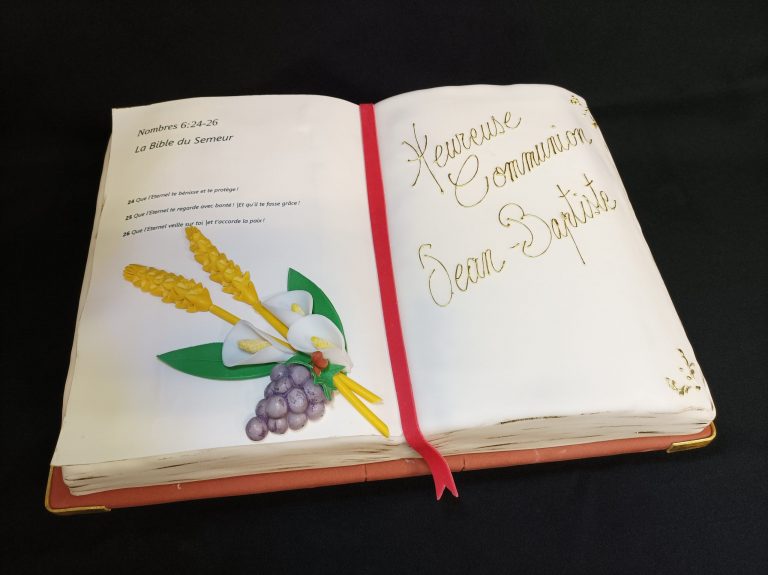 Nombres 6:24-26
La Bible du Semeur
24 Que l'Eternel te bénisse et te protège!
25 Que l'Eternel te regarde avec bonté! |Et qu'il te fasse grâce!
26 Que l'Eternel veille sur toi |et t'accorde la paix!
Heureuse
Communion
Jean-Baptiste